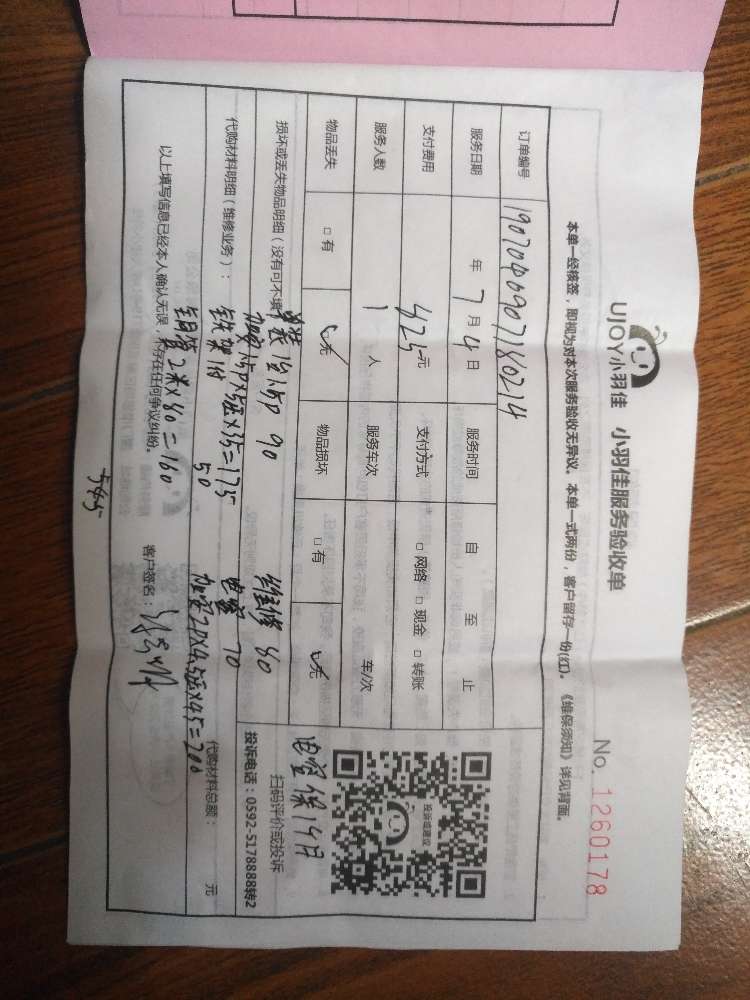 UJOY小羽佳 小羽佳服务验收单
No. 1260178
本单一经核签，即视为对本次服务验收无异议。本单一式两份，客户留存一份(红)。《维保须知》详见背面。
订单编号 19070409071180214
服务日期 年 7 月 4 日 服务时间 自 至 止
支付费用 825元 支付方式 □ 网络 □ 现金 □ 转账
服务人数 1 人 服务车次 车/次
物品丢失 □ 有 ☑无 物品损坏 □ 有 ☑无
投诉或建议
扫码评价或投诉
投诉电话：0592-5178888转2
电容保1个月
损坏或丢失物品明细（没有可不填
单装1台1.5P 90 维修 80
代购材料明细（维修业务）：
加雪1.5P×5压×35=175 电容 70
铁架1付 50 加雪2P×4.5压×45=200
铜管2米×80=160 代购材料总额： 元
以上填写信息已经本人确认无误，不存在任何争议纠纷。 客户签名：
545